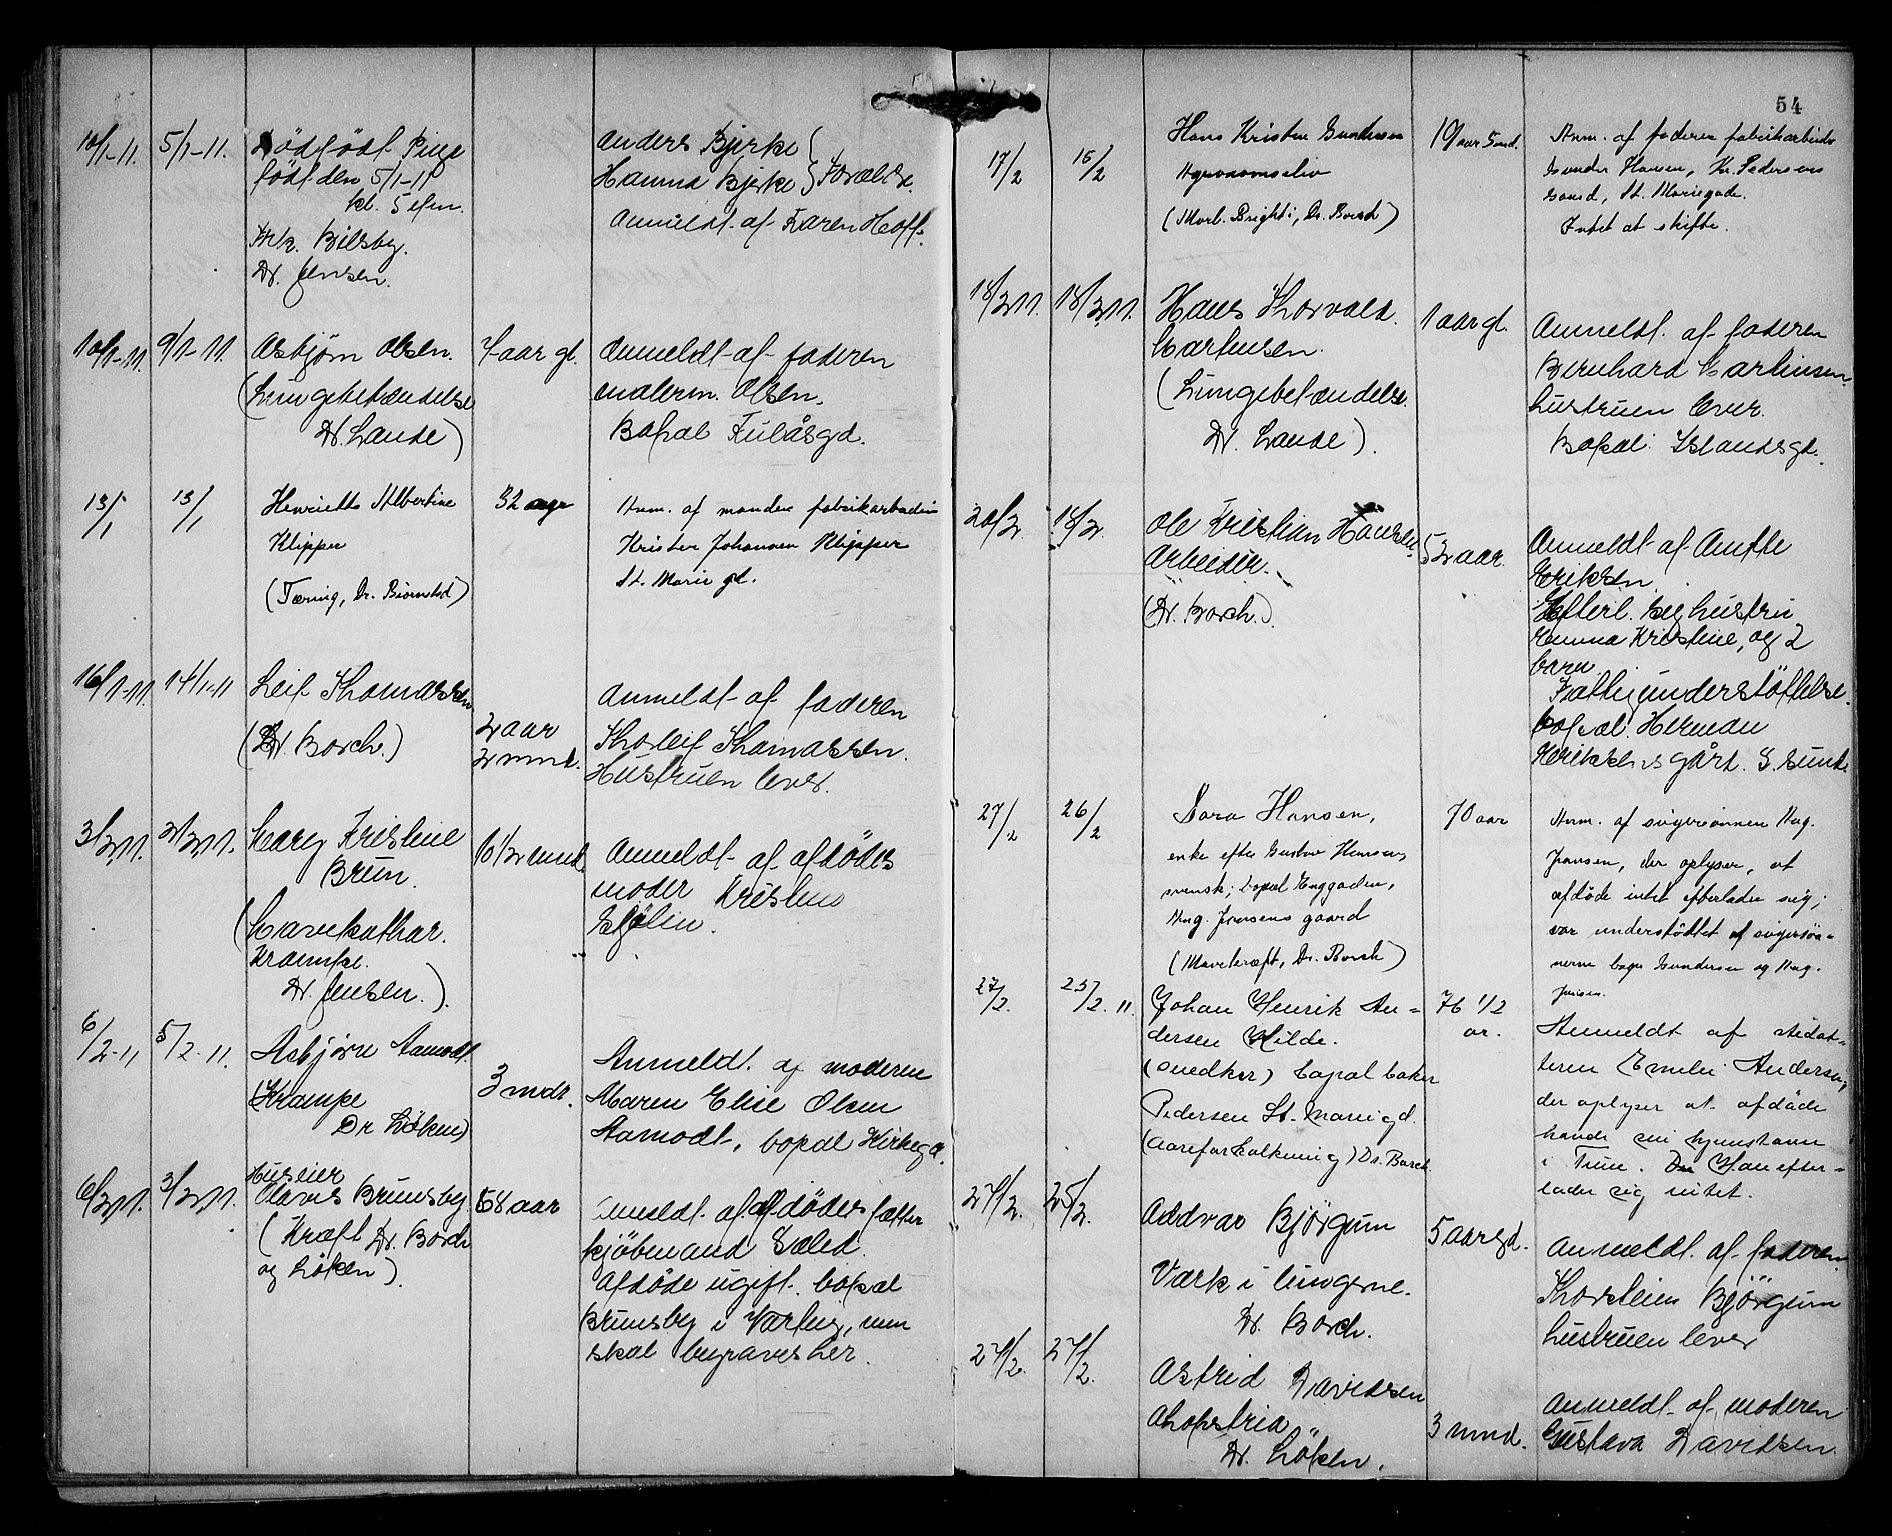 10/1-11. 5/1-11. Dödfödt Pige
födt den 5/1-11
kl. 5 efm.
Bilsby.
Dr. Jensen.
Anders Bjerke
Hanna Bjerke } Forældre.
Anmeldt af Karen Hoff.
10/1-11. 9/1-11. Asbjørn Olsen. 7 aar gl.
(Lungebetændelse
Dr. Lande)
Anmeldt af faderen
malerm. Olsen.
Bopæl Kulåsgd.
13/1 13/1 Henriette Albertine 32 aar
Klipper
(Tæring, Dr. Bjørnstad)
Anm. af manden fabrikarbeider
Krister Johansen Klipper
St. Marie gd.
16/1-11. 14/1-11 Leif Thomassen
(Dr. Borch.)
2 aar
2 mnd.
Anmeldt af faderen
Thorleif Thomassen.
Hustruen lever.
3/2 11. 2/2 11. Mary Kristine
Brun.
(Mavekathar.
Krampe.
Dr. Jensen.)
6 1/2 mnd
Anmeldt af afdødes
moder Kristine
Sjølin.
6/2-11 5/2-11. Asbjørn Aamodt.
(Krampe
Dr Løken)
3 mdr.
Anmeldt. af moderen
Maren Elise Olsen
Aamodt, bopæl Kirkeg.
6/2 11. 3/2 11. Huseier
Olaves Brunsby 68 aar
(Kræft Dr. Borch
og Løken).
Anmeldt af afdødes fætter
kjøbmand Sæled.
Afdøde ugift. bopæl
Brunsby i Varteig, men
skal begraves her.
54
17/2 15/2 Hans Kristen Gundersen
Agronomelev
(Morb. Brighti, Dr. Borch)
19 aar 5 md.
Anm. af faderen fabrikarbeider
Gunder Hansen, Kr. Pedersens
gaard, St. Mariegade.
Intet at skifte.
18/2 11. 18/2 11. Hans Thorvald
Martinsen.
(Lungebetændelse.
Dr. Lande).
1 aar gl.
Anmeldt af faderen
Bernhard Martinsen.
hustruen lever.
Bopæl: Islandsgd.
20/2 18/2. Ole Kristian Hansen.
Arbeider.
(Dr. Borch.)
52 aar.
Anmeldt af Anette
Eriksen
Efterl. sig hustru
Emma Kristine, og 2
barn
Fattigunderstöttelse.
bopæl. Herman
Henriksens gård. G. sund.
27/2 26/2 Sara Hansen,
enke efter Gustav Hansen,
svensk; bopæl Enggaden,
Aug. Jensens gaard
(Mavekræft, Dr. Borch)
70 aar
Anm. af svigersønnen Aug.
Jensen, der oplyser, at
afdøde intet efterlader sig;
var understøttet af svigersøn-
nerne bager Gundersen og Aug.
Jensen.
27/2. 25/2. 11. Johan Henrik An-
dersen Hilde.
(snedker) bopæl baker
Pedersen St. marie gd.
(aareforkalkning) Dr. Borch.
76 1/2
ar.
Anmeldt af stedat-
teren Emelie Andersen,
der oplyser at afdøde
havde sin hjemstavn
i Tune. Han efter-
lader sig intet.
27/2. 25/2. Oddvar Bjørgum
Værk i lungerne.
Dr. Borch.
5 aar gd.
Anmeldt. af faderen.
Thorstein Bjørgum
hustruen lever
27/2. 27/2. Astrid Davidsen
Athrepsia
Dr. Løken.
3 mnd.
Anmeldt af moderen
Gustava Davidsen.